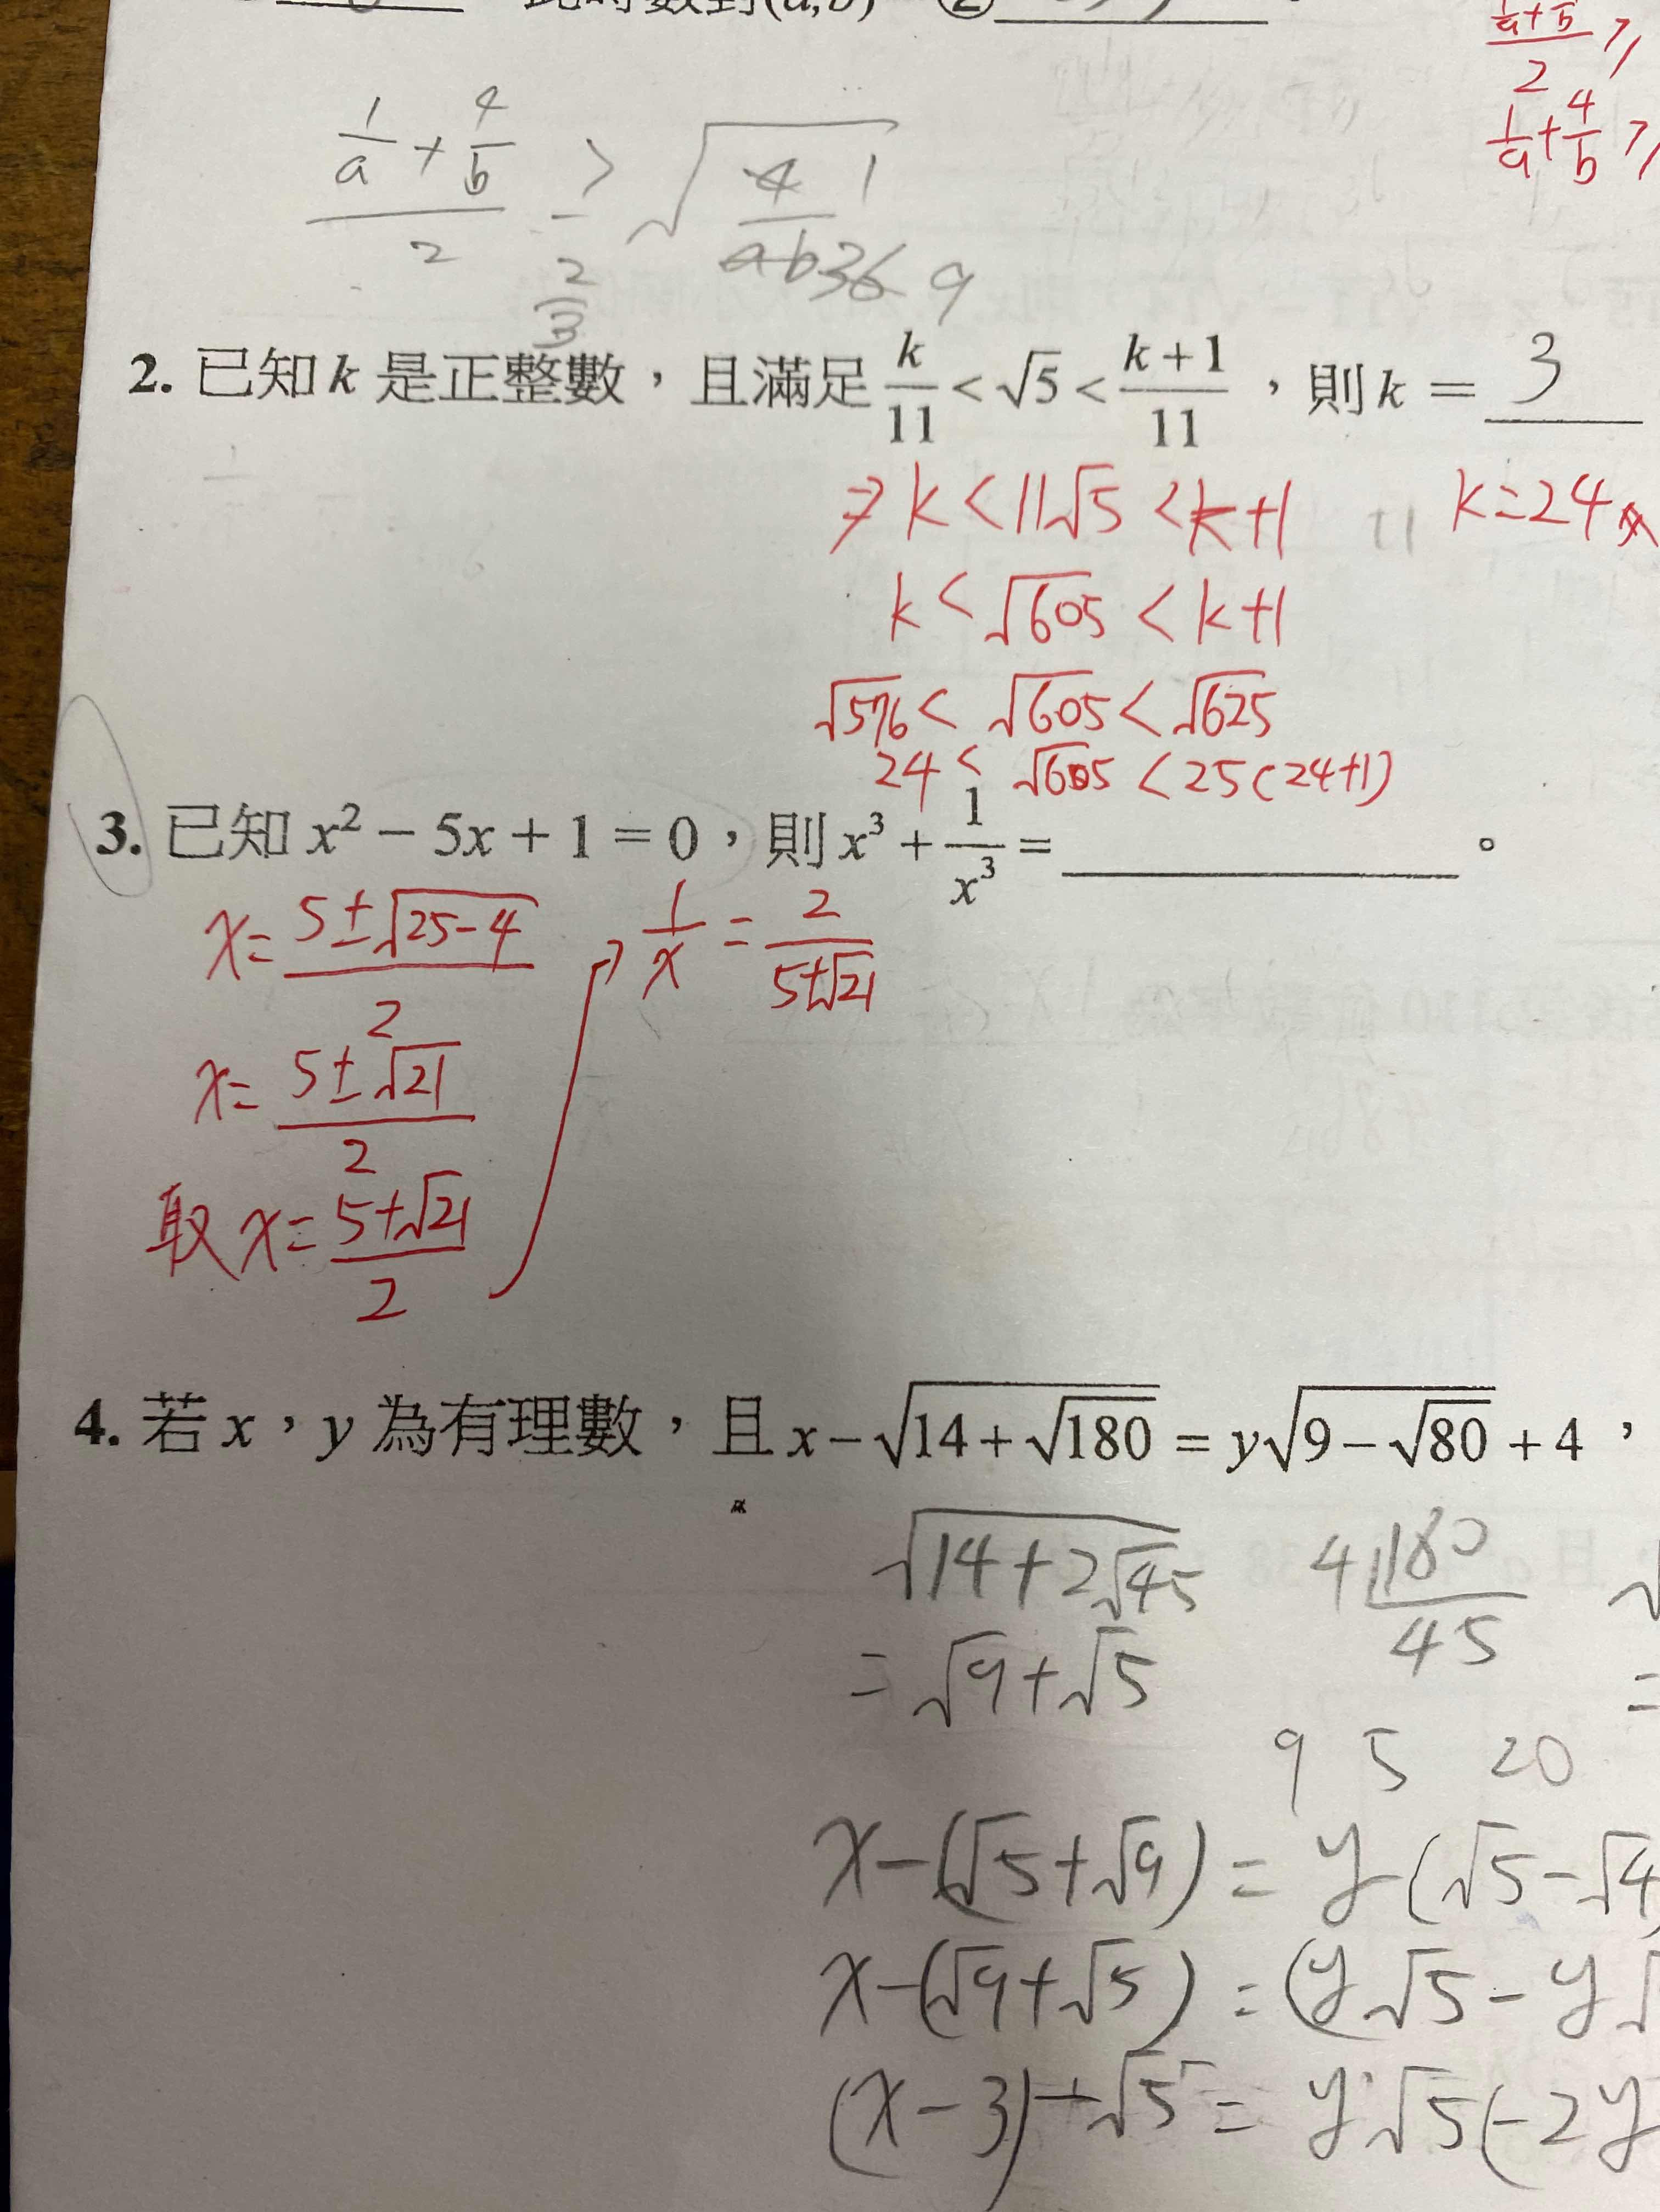 (a,b) ②
1/a + 4/b / 2 ≥ √(4/ab) 1 36 9
2/3
1/a + 4/b ≥
2. 已知 k 是正整數,且滿足 k/11 < √5 < (k+1)/11 ,則 k = 3
⇒ k < 11√5 < k+1
k=24
k < √605 < k+1
√576 < √605 < √625
24 < √605 < 25 (24+1)
3. 已知 x² − 5x + 1 = 0,則 x³ + 1/x³ = 。
x = (5±√(25-4))/2
1/x = 2/(5+√21)
x = (5±√21)/2
取 x = (5+√21)/2
4. 若 x,y 為有理數,且 x − √(14 + √180) = y√(9 − √80) + 4,
√(14+2√45)
4 180
45
= √9 + √5
9 5 20
x-(√5+√9) = y(√5-√4
x-(√9+√5) = (y√5 - y√
(x-3) √5 = y√5(-2y